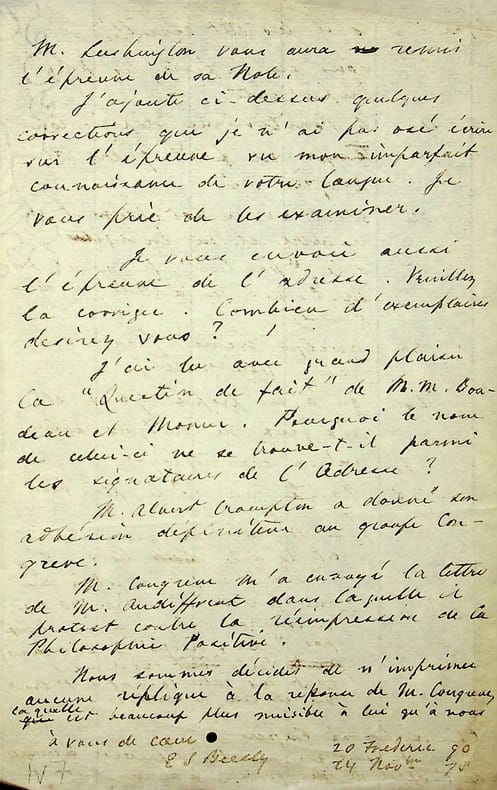 M. Lushington vous aura remis
l'épreuve de sa Note.
J'ajoute ci-dessus quelques
corrections que je n'ai pas osé écrire
sur l'épreuve vu mon imparfait
connaissance de votre langue. Je
vous prie de les examiner.
Je vous envoie aussi
l'épreuve de l'adresse. Veuillez
la corriger. Combien d'exemplaires
desirez vous ?
J'ai lu avec grand plaisir
la "Question de fait" de M.M. Bou-
deau et Monier. Pourquoi le nom
de celui-ci ne se trouve-t-il parmi
les signataires de l'Adresse ?
M. Albert Crompton a donné son
adhésion définitive au groupe Con-
greve.
M. Congreve m'a envoyé la lettre
de M. Audiffrent dans laquelle il
protest contre la réimpression de la
Philosophie Positive.
Nous sommes décidés de n'imprimer
aucune réplique à la réponse de M. Congreve,
laquelle
est beaucoup plus nuisible à lui qu'à nous
à vous de cœur
E S Beesly
20 Frederic
24 Novbre 78